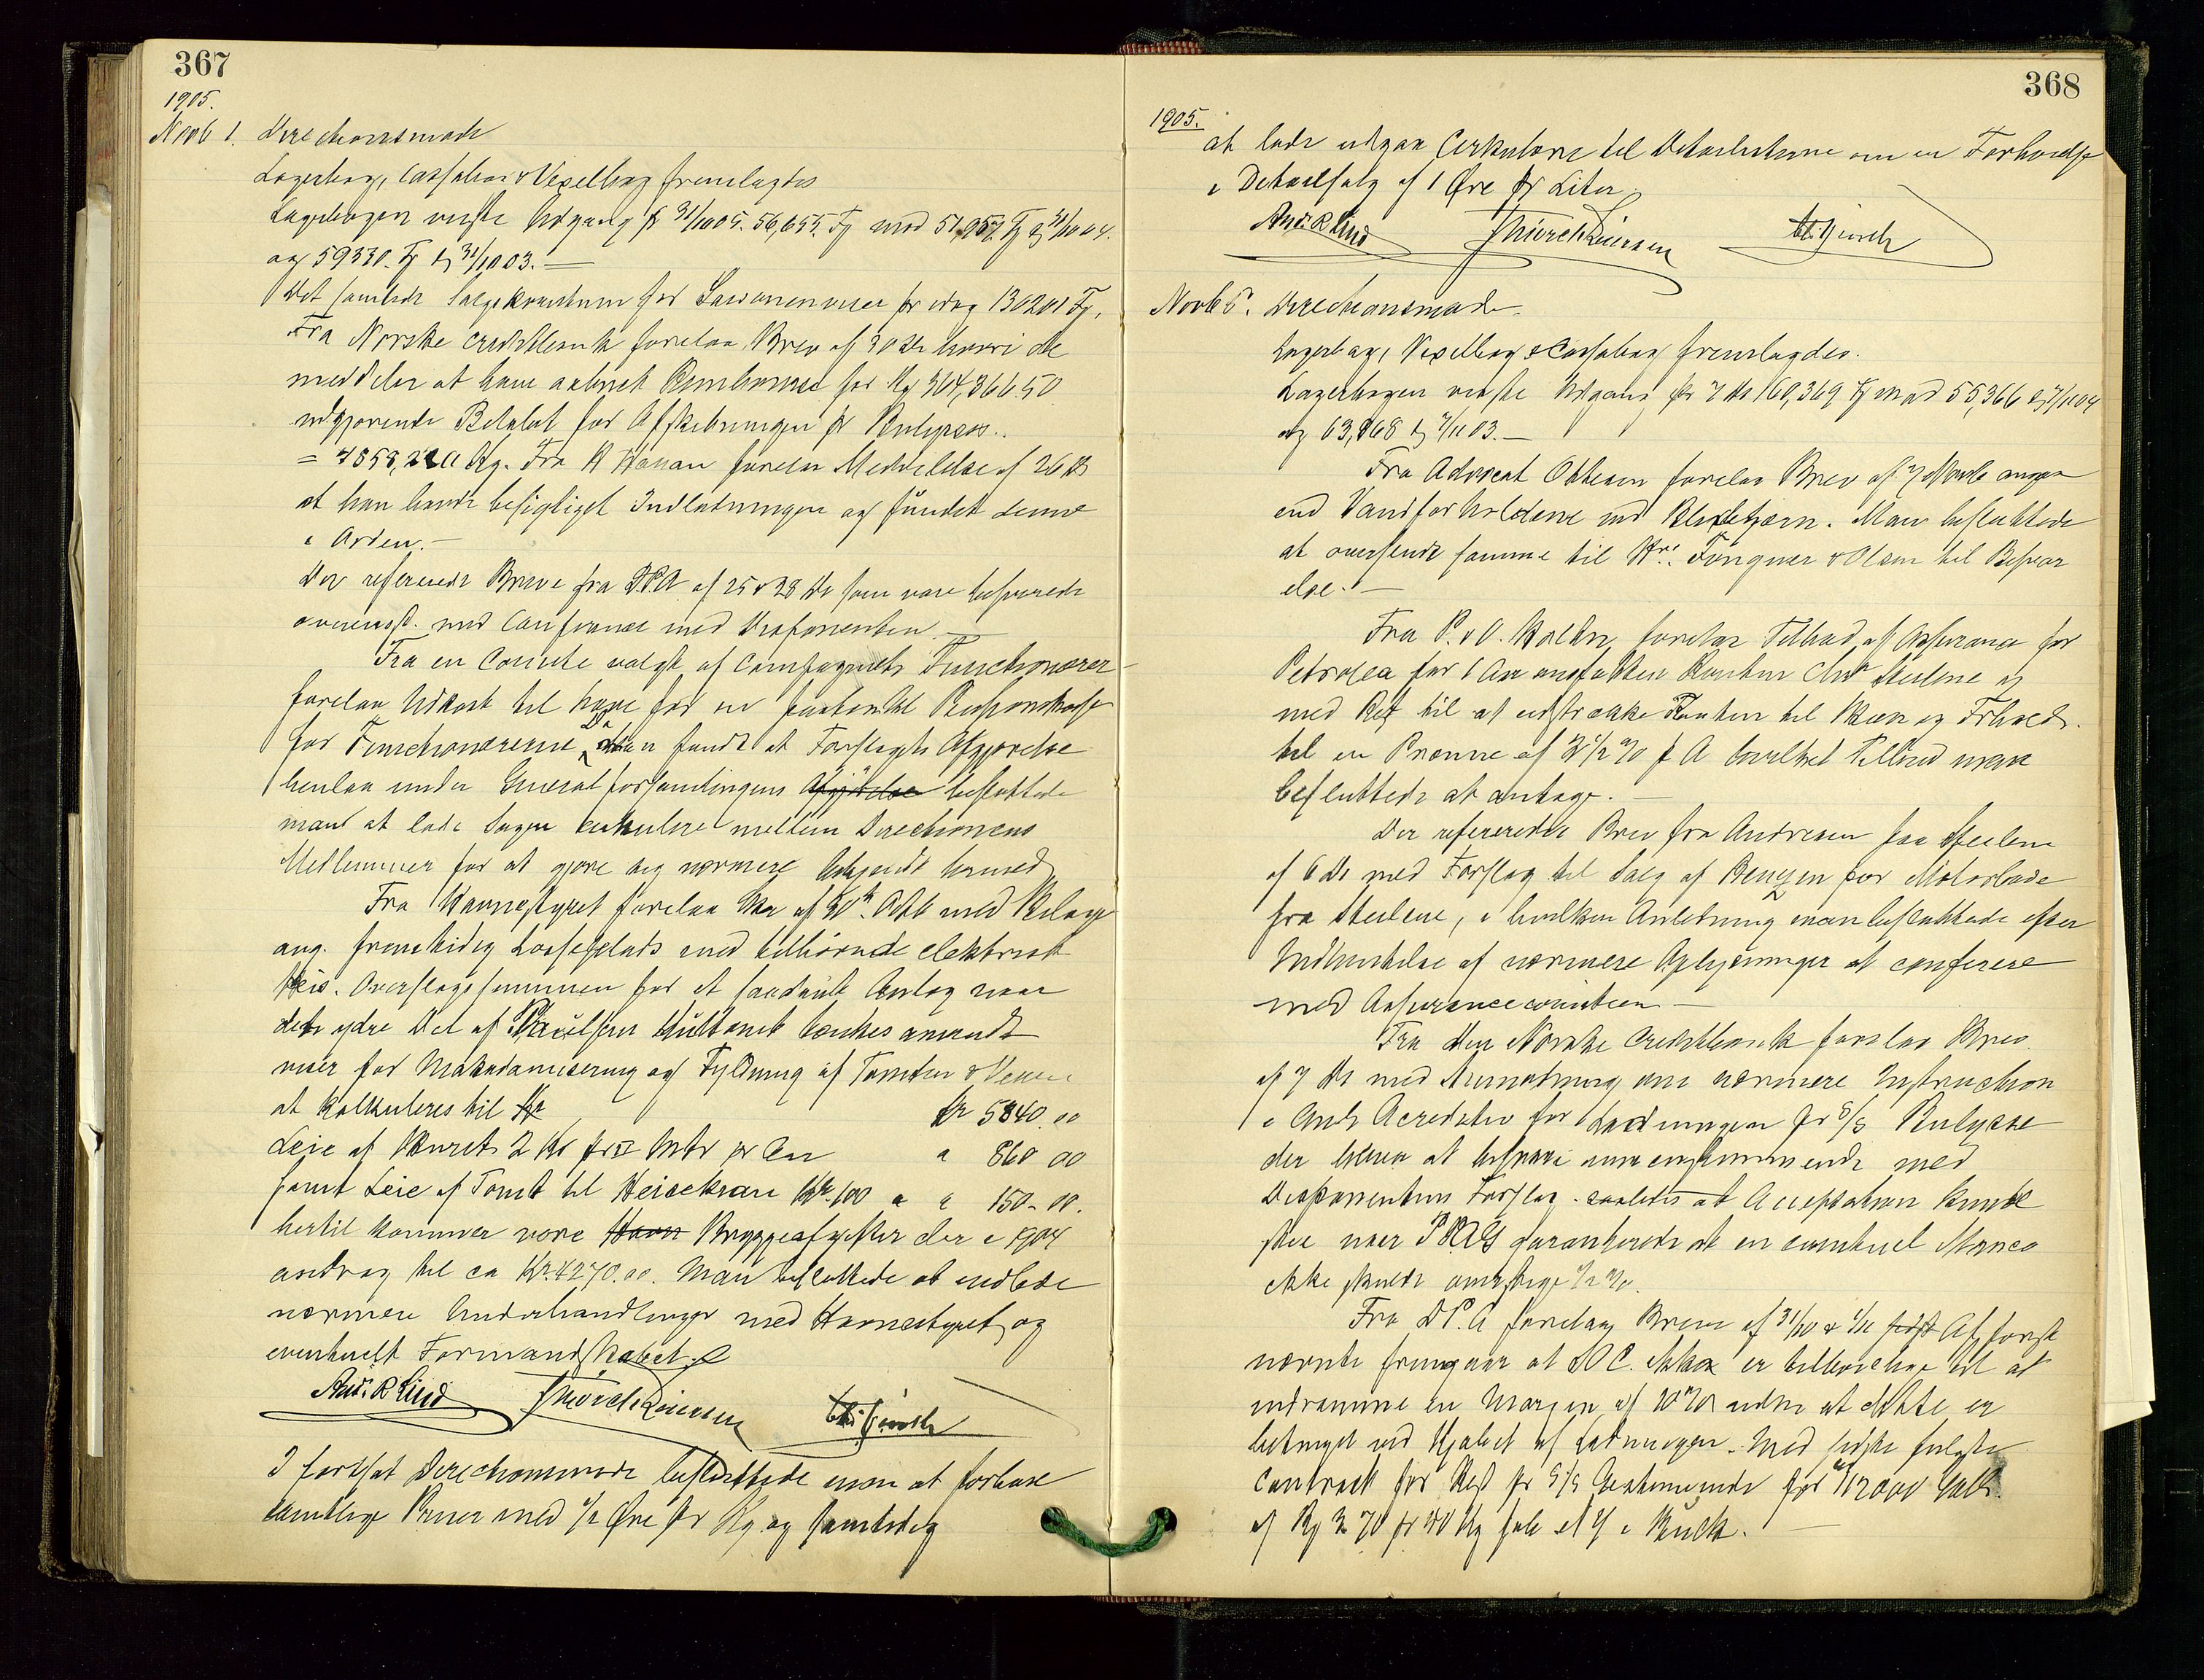 367
1905.
Novb 1. Directionsmøde
Lagerbog, Cassabog & Vexelbog fremlagdes
Lagerbogen viste Udgang pr 31/10 05. 56,655 Fj mod 51,957 Fj pr 31/10 04.
og 59330. Fj pr 31/10 03. —
Det samlede Salgskvantum for Saisonen var pr idag 130201 Fj.
Fra Norske Creditbank forelaa Brev af 30 ds hvori de
meddeler at have aabnet Remburse for Kg 364,366.50
udgjørende Beløbet for Afskibningen pr
= Kg. Fra H forelaa Meddelelse af 26 ds
at han havde besigtiget Indladningen og fundet denne
i Orden. —
Der refereredes Breve fra D.P.A af 25 & 28 ds som vare besvarede
overensst. med Conference med Disponenten. —
Fra en Comite valgt af Compagniets Functionærer
forelaa Udkast til for en Pensionskasse
for Functionærerne. Da man fandt at Forslagets Afgjørelse
henlaa under Generalforsamlingens Afgjørelse besluttede
man at lade Sagen cirkulere mellem Directionens
Medlemmer for at gjøre sig nærmere bekjendt hermed
Fra Havnestyret forelaa Skr af 30te Octb med Bilag
ang. fremtidig Losseplads med tilhørende elektrisk
Heis. Overslagssummen for et saadant Anlæg naar
det ydre Del af tænkes anvendt
mer for Makadamisering og Fyldning af Tomten & Veien
at kalkuleres til Kr Kr 5840.00
Leie af Muret 2 Kr pr Mtr pr Aar " 860 00
samt Leie af Tomt til Heisekran Kr. 100 " " 150-00.
hertil kommer vore Havn Bryggeafgifter der i 1904
androg til ca Kr. 4270.00. Man besluttede at indlede
nærmere Underhandlinger med Havnestyret og
eventuelt Formandskabet.
And. R Lind Thorch
I fortsat Directionsmøde besluttede man at forhøie
samtlige Priser med 1/2 Øre pr Kg og samtidig
368
1905.
at lade udgaa Cirkulære til Detailisterne om en Forhøielse
i Detailsalg af 1 Øre pr Liter.
And. R Lind Thorch
Novb 8. Directionsmøde.
Lagerbog, Vexelbog & Cassabog fremlagdes.
Lagerbogen viste Udgang pr 7 ds 60,369 Fj mod 55,366 pr 7/11 04
og 63,868 pr 7/11 03. —
Fra Advocat Ottesen forelaa Brev af 7 Novb angaa
end Vandforholdene ved . Man besluttede
at oversende samme til Hr. & Olsen til Besvar
else. —
Fra P. & O. forelaa Tilbud af Assurance for
Petrolea for 1 Aar omfattende Steilene og
med Ret til at udstrække til og
til en Præmie af 1/2 % p A hvilket Tilbud man
besluttede at antage. —
Der refereredes Brev fra Andresen paa Steilene
af 6 ds med Forslag til Salg af Benzin for Motorbaade
fra Steilene, i hvilken Anledning man besluttede efter
Indhentelse af nærmere Oplysninger at conferere
med Assurancecomiteen —
Fra Den Norske Creditbank forelaa Brev
af 7 ds med Anmodning om nærmere Instruction
i Anl. Acreditiv for Ladningen pr S/S
der bleven at besvare overensstemmende med
Disponentens Forslag saaledes at Acceptation kunde
ske naar garanterede at en eventuel Manco
ikke skulde overstige 1/2 %.
Fra D.P.A forelaa Breve af 31/10 & 1/11 sidst Af først
nævnte fremgaar at S O C. ikke er tilbøielige til at
indrømme en Margen af 10 % uden at dette er
betinget ved Kjøbet af Ladningen. Med sidste fulgte
Contract for Rest pr S/S for 112000 Galls
af Rg 3 70 pr 100 Kg i Bulk. —